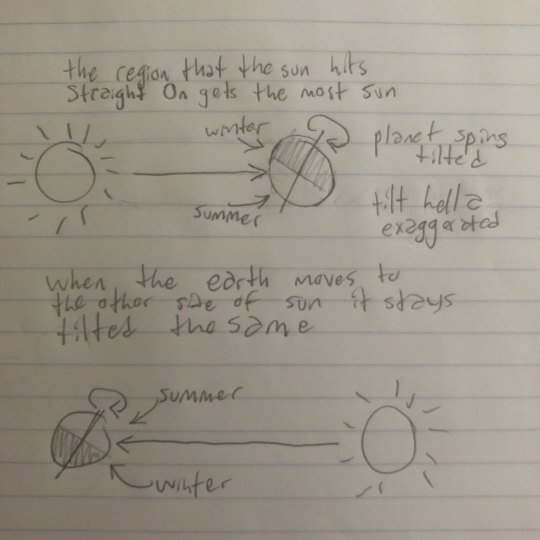 the region that the sun hits
Straight On gets the most sun
winter
planet spins
tilted
summer
tilt hella
exaggerated
when the earth moves to
the other side of sun it stays
tilted the same
summer
winter